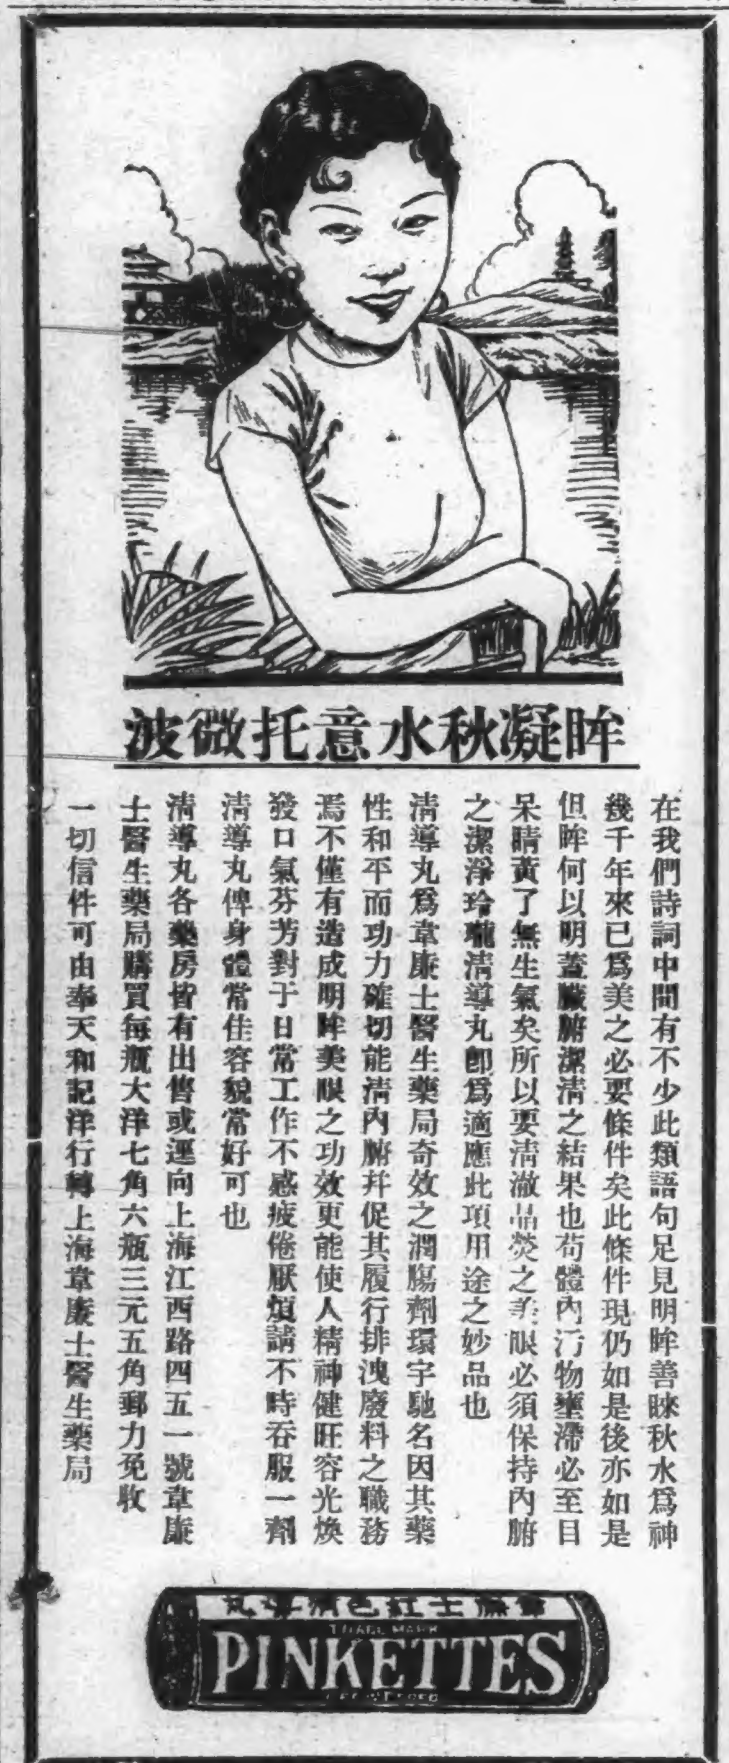 眸凝秋水意托微波
在我們詩詞中間有不少此類語句足見明眸善睞秋水爲神
幾千年來已爲美之必要條件矣此條件現仍如是後亦如是
但眸何以明蓋臟腑潔清之結果也苟體內污物壅滯必至目
呆睛黃了無生氣矣所以要清澈晶熒之美眼必須保持內腑
之潔淨玲瓏清導丸卽爲適應此項用途之妙品也
清導丸爲韋廉士醫生藥局奇效之潤腸劑環宇馳名因其藥
性和平而功力確切能清內腑幷促其履行排洩廢料之職務
焉不僅有造成明眸美眼之功效更能使人精神健旺容光煥
發口氣芬芳對于日常工作不感疲倦厭煩請不時吞服一劑
清導丸俾身體常佳容貌常好可也
清導丸各藥房皆有出售或逕向上海江西路四五一號韋廉
士醫生藥局購買每瓶大洋七角六瓶三元五角郵力免收
一切信件可由奉天和記洋行轉上海韋廉士醫生藥局
韋廉士紅色清導丸
TRADE MARK
PINKETTES
REGISTERED